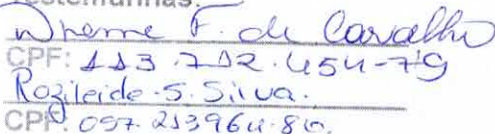 estemunhas:
F. de Carvalho
CPF: 113.712.454-79
Rozileide.S.Silva.
CPF: 097.213964-86.